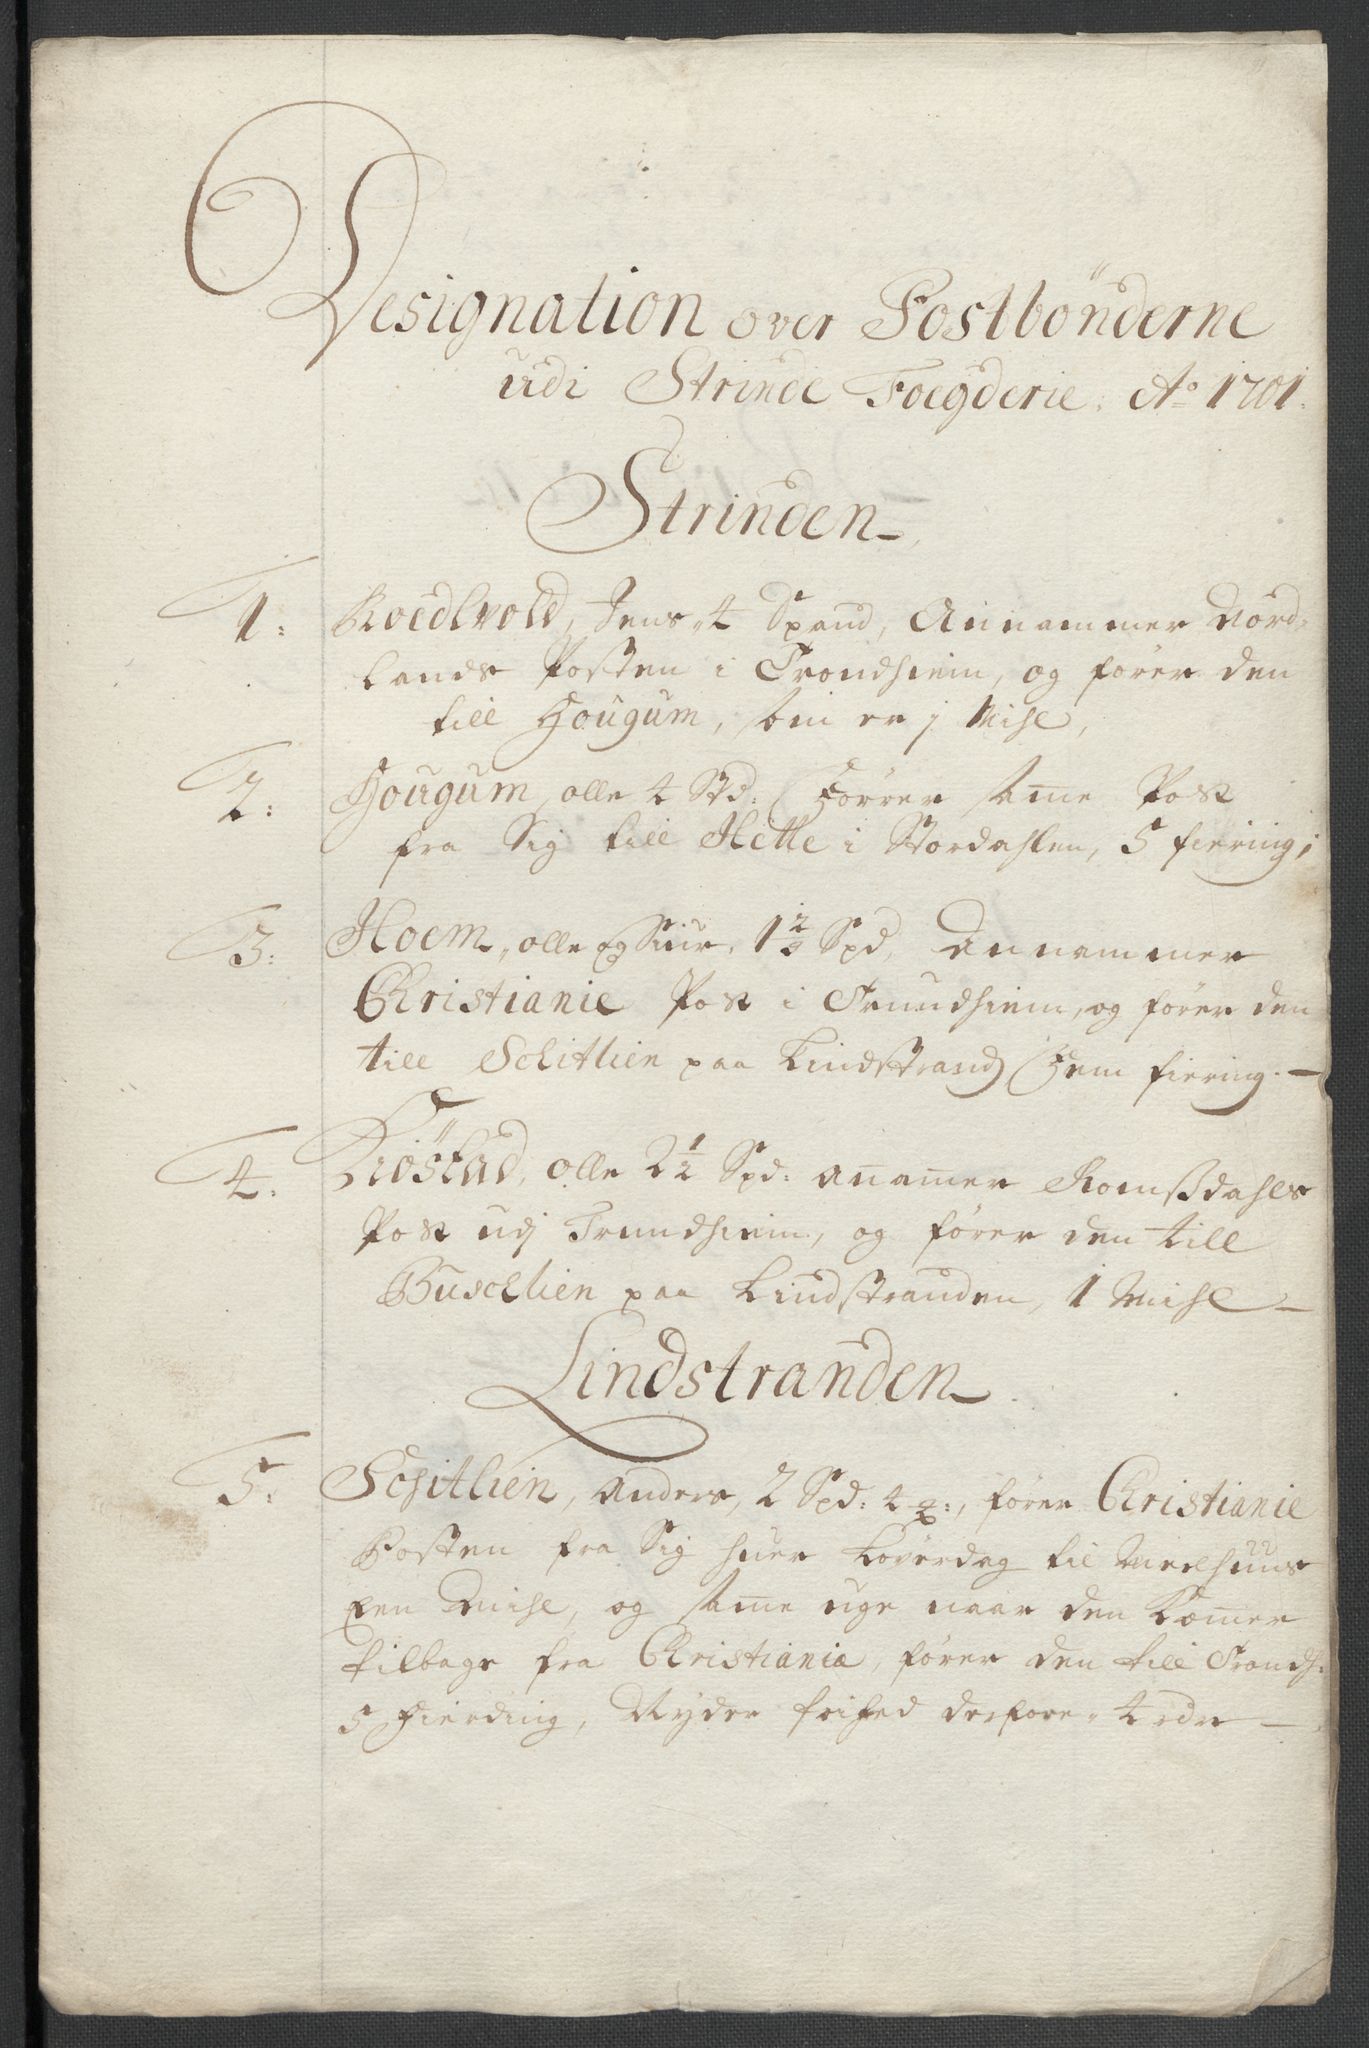 Designation over Postbönderne
udi Strinde Foegderie. Ao 1701.
Strinden
1: Roedlvold, Jens 4 Spand, Annammer Nord-
lands Posten i Trondhiem, og fører den
till Hougum, som er j Mihl,
2: Hougum, olle 4 Spd: Förrer same Post
fra Sig till Helle i Stordahlen, 5 fiering;
3: Hoem, olle og Siur, 1 2/3 Spd, Annammer
Christianie Post i Trundhiem, og fører den
till Schitlien paa Lindstrand, Fem fiering.
4: Kiöstad, olle 2 1/2 Spd: anamer Romsdahls
Post udj Trundhiem, og fører den till
Buschlien paa Lindstranden, 1 Mihl
Lindstranden
5: Schitlien, Anders, 2 Spd: 4 , fører Christianie
Posten fra Sig huer Løverdag til Meelhuus
Een Mihl, og same uge naar den Komer
tilbage fra Christianiæ, fører den till Trondh:
5 Fierding, Nyder frihed derfore 4 rdr